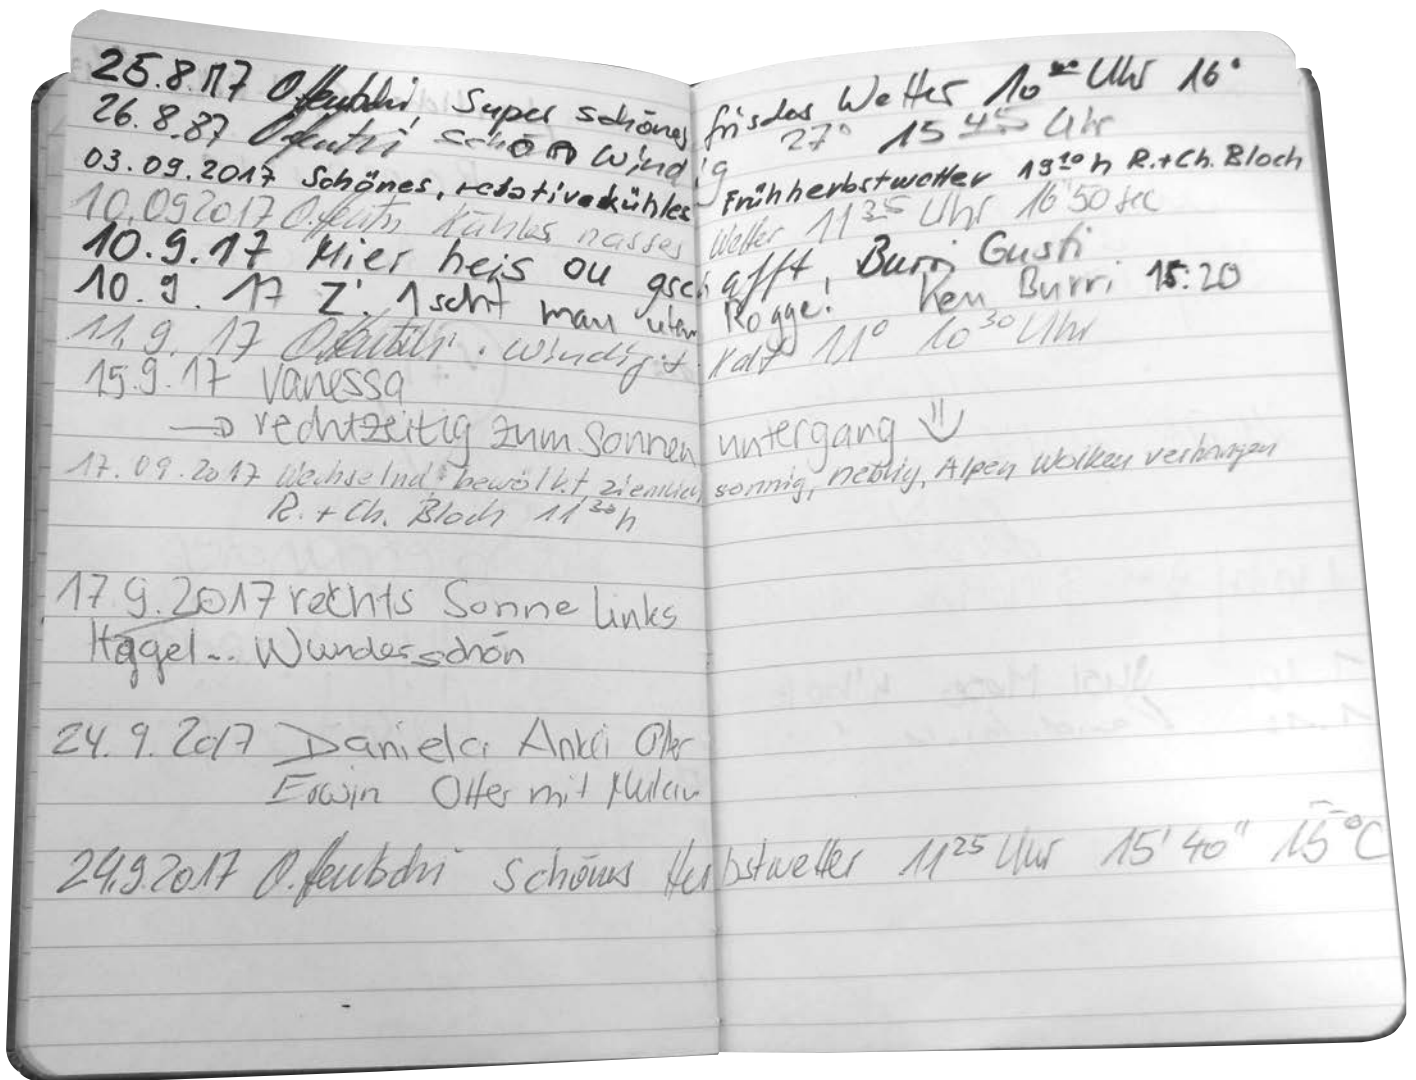 25.8.17 Super schönes frisches Wetter 10 Uhr 16°
26.8.87 schön windig 27° 15 45 Uhr
03.09.2017 Schönes, relativ kühles Frühherbstwetter 19 10 h R.+Ch. Bloch
10.09 2017 kühles nasses Wetter 11 35 Uhr 16'50 sec
10.9.17 Mier heis ou gschafft, Burri Gusti
10.9.17 Z' 1scht man Rogge! Burri 15:20
11.9.17 windig + kalt 11° 10 30 Uhr
15.9.17 Vanessa
→ rechtzeitig zum Sonnenuntergang
17.09.2017 Wechselnd bewölkt, ziemlich sonnig, neblig, Alpen Wolken verhangen
R. + Ch. Bloch 11 30 h
17.9.2017 rechts Sonne links
Haggel... Wunderschön
24.9.2017 Daniela Otter
Erwin Otter mit
24.9.2017 schönes Herbstwetter 11 25 Uhr 15'40" 15°C